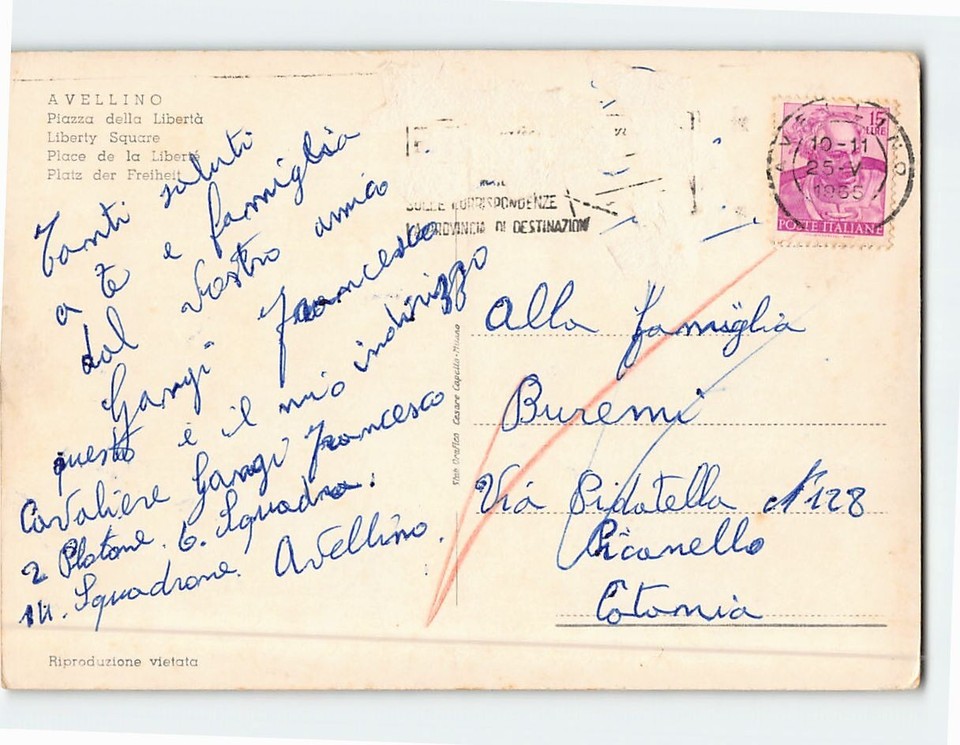 AVELLINO
Piazza della Libertà
Liberty Square
Place de la Liberté
Platz der Freiheit
Tanti saluti
a te e famiglia
dal vostro amico
Gangi Francesco
questo è il mio indirizzo
Cavaliere Gangi Francesco
2 Plotone. 6. Squadra.
14. Squadrone. Avellino.
Riproduzione vietata
Stab. Grafico Cesare Capello-Milano
SULLE CORRISPONDENZE
LA PROVINCIA DI DESTINAZION
AVELLINO
10-11
25-V
1965
15
LIRE
POSTE ITALIANE
Alla famiglia
Buremi
Via Pidatella N° 128
Picanello
Catania